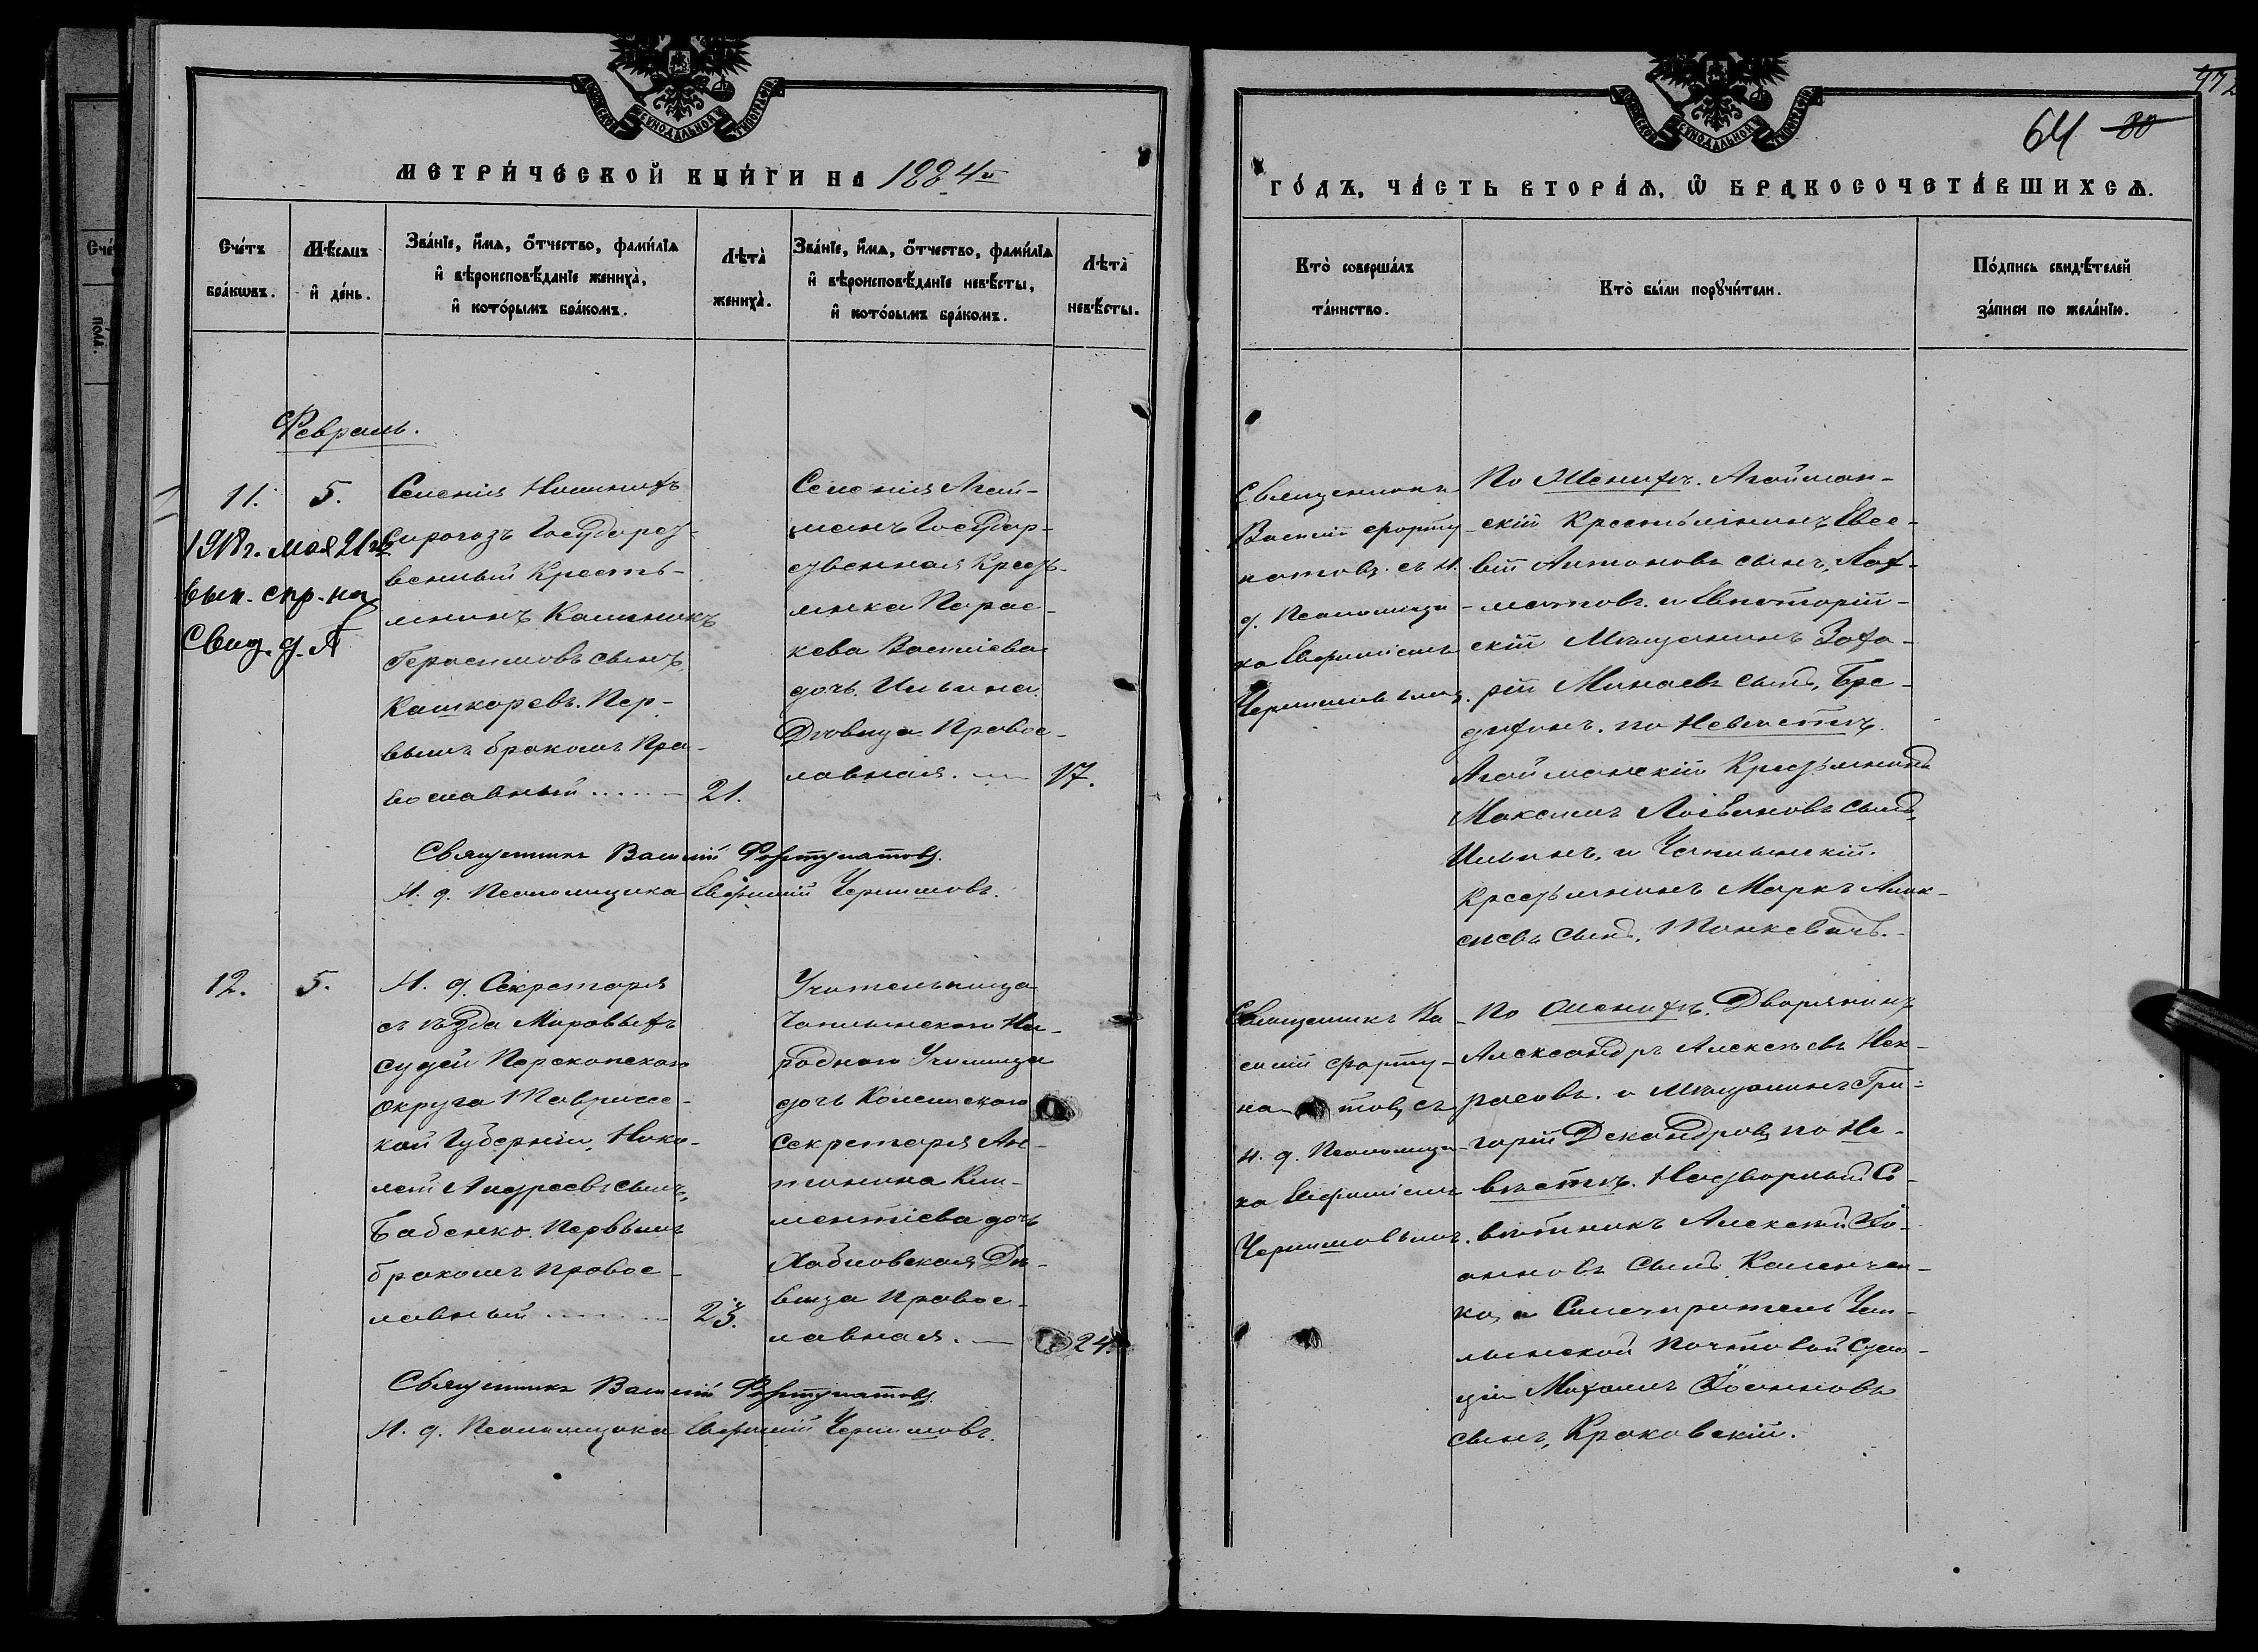 МЕТРИ́ЧЕСКОЙ КНИ́ГИ НА 1884й
Сче́тъ бра́кωвъ.
Мѣ́сяцъ и҆ де́нь.
Зва́нїе, и҆́мѧ, ѻ҆́тчество, фами́лїѧ и҆ вѣроисповѣ́данїе жениха̀, и҆ кото́рымъ бра́комъ.
Лѣта̀ жениха̀.
Зва́нїе, и҆́мѧ, ѻ҆́тчество, фами́лїѧ и҆ вѣроисповѣ́данїе невѣ́сты, и҆ кото́рымъ бра́комъ.
Лѣта̀ невѣ́сты.
Февраль.
11.
5.
1918 г. мая 21 го
вып. спр. на
Свид. д. Л
Селенія Нижнихъ
Сирогозъ Государст-
венный Кресть-
янинъ Калиникъ
Герасимовъ сынъ,
Кашкаревъ. Пер-
вымъ бракомъ Пра-
вославный
21.
Селенія Агай-
манъ Государ-
ственная Кресть-
янка Парас-
кева Василіева
дочь Ильина
Дѣвица Правос-
лавная.
17.
Священникъ Василій Фортунатовъ.
И. д. Псаломщика Евфимій Чернышовъ.
12.
5.
И. д. Секретаря
съѣзда Мировыхъ
судей Перекопскаго
округа Тавричес-
кой Губерніи, Нико-
лай Андреевъ сынъ,
Бабенко. Первымъ
бракомъ правос-
лавный
23.
Учительница
Чаплынскаго На-
роднаго Училища
дочь Колежскаго
Секретаря Ан-
тонина Кли-
ментіева дочь
Хабловская Дѣ-
вица правос-
лавная.
24.
Священникъ Василій Фортунатовъ.
И. д. Псаломщика Евфимій Чернышовъ.
64 80
ГО́ДЪ, ЧА́СТЬ ВТОРА́Ѧ, Ѡ҆ БРАКОСОЧЕТА́ВШИХСѦ.
Кто̀ соверша́лъ та́инство.
Кто̀ бы́ли порꙋчи́тели.
По́дпись свидѣ́телей за́писи по жела́нїю.
Священникъ
Василій Форту-
натовъ съ И.
д. Псаломщи-
ка Евфиміемъ
Чернышовымъ.
По Женихѣ. Агайман-
скій Крестьянинъ Евсе-
вій Антоновъ сынъ, Лах-
матовъ. и Евпаторій-
скій Мѣщанинъ Заха-
рій Минаевъ сынъ, Бре-
дихинъ. по Невѣстѣ.
Агайманскій Крестьянинъ
Максимъ Логвиновъ сынъ,
Ильинъ, и Чаплынскій
Крестьянинъ Маркъ Алек-
сѣевъ сынъ, Панкевичъ.
Священникъ Ва-
силій Форту-
натовъ съ
и. д. Псаломщи-
ка Евфиміемъ
Чернышовымъ.
По Женихѣ. Дворянинъ
Александръ Алексѣевъ Нек-
расовъ. и Мѣщанинъ Гри-
горій Декандровъ по Не-
вѣстѣ. Надворный Со-
вѣтникъ Алексѣй Іо-
анновъ сынъ Калинчен-
ко, и Смотритель Чап-
лынской Почтовой Стан-
ціи Михаилъ Іоанновъ
сынъ, Краковскій.